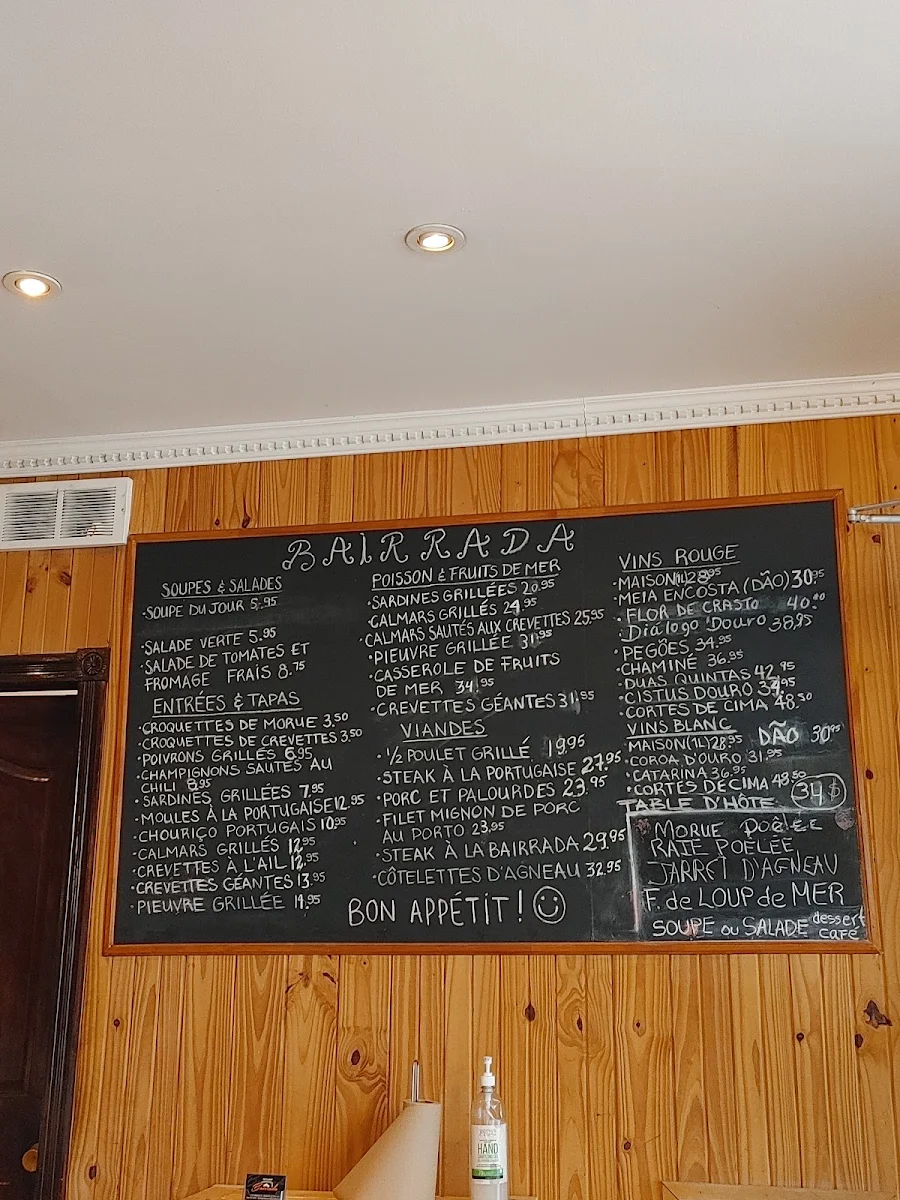 BAIRRADA
SOUPES & SALADES
·SOUPE DU JOUR 5.95
·SALADE VERTE 5.95
·SALADE DE TOMATES ET
FROMAGE FRAIS 8.75
ENTRÉES & TAPAS
·CROQUETTES DE MORUE 3.50
·CROQUETTES DE CREVETTES 3.50
·POIVRONS GRILLÉS 6.95
·CHAMPIGNONS SAUTÉS AU
CHILI 8.95
·SARDINES GRILLÉES 7.95
·MOULES À LA PORTUGAISE 12.95
·CHOURIÇO PORTUGAIS 10.95
·CALMARS GRILLÉS 12.95
·CREVETTES À L'AIL 12.95
·CREVETTES GÉANTES 13.95
·PIEUVRE GRILLÉE 14.95
POISSON & FRUITS DE MER
·SARDINES GRILLÉES 20.95
·CALMARS GRILLÉS 24.95
·CALMARS SAUTÉS AUX CREVETTES 25.95
·PIEUVRE GRILLÉE 31.95
·CASSEROLE DE FRUITS
DE MER 34.95
·CREVETTES GÉANTES 31.95
VIANDES
·1/2 POULET GRILLÉ 19.95
·STEAK À LA PORTUGAISE 27.95
·PORC ET PALOURDES 23.95
·FILET MIGNON DE PORC
AU PORTO 23.95
·STEAK À LA BAIRRADA 29.95
·CÔTELETTES D'AGNEAU 32.95
BON APPÉTIT!
VINS ROUGE
·MAISON(1L) 28.95
·MEIA ENCOSTA (DÃO) 30.95
·FLOR DE CRASTO 40.00
Dialogo Douro 38.95
·PEGÕES 34.95
·CHAMINÉ 36.95
·DUAS QUINTAS 42.95
·CISTUS DOURO 34.95
·CORTES DE CIMA 48.50
VINS BLANC
·MAISON(1L) 28.95 DÃO 30.95
·COROA D'OURO 31.95
·CATARINA 36.95
·CORTES DE CIMA 48.50
TABLE D'HÔTE 34$
MORUE POÊLÉE
RAIE POÊLÉE
JARRET D'AGNEAU
F. de LOUP de MER
SOUPE ou SALADE dessert
café
HAND